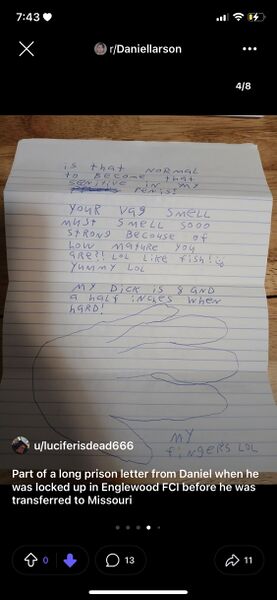 7:43
r/Daniellarson
4/8
is that NORMAL
to Become that
sensitive in my
penis!
YOUR Vag SMELL
must SMELL SOOO
STRONG Because OF
HOW MATURE YOU
ARE?! LOL LIKE FISH!
YUMMY LOL
MY DICK IS 8 AND
a half inches WHEN
HARD!
MY
fingers LOL
u/luciferisdead666
Part of a long prison letter from Daniel when he
was locked up in Englewood FCI before he was
transferred to Missouri
0
13
11